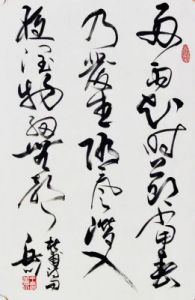 好雨知時節當春
乃發生隨風潛入
夜潤物細無聲
杜甫詩